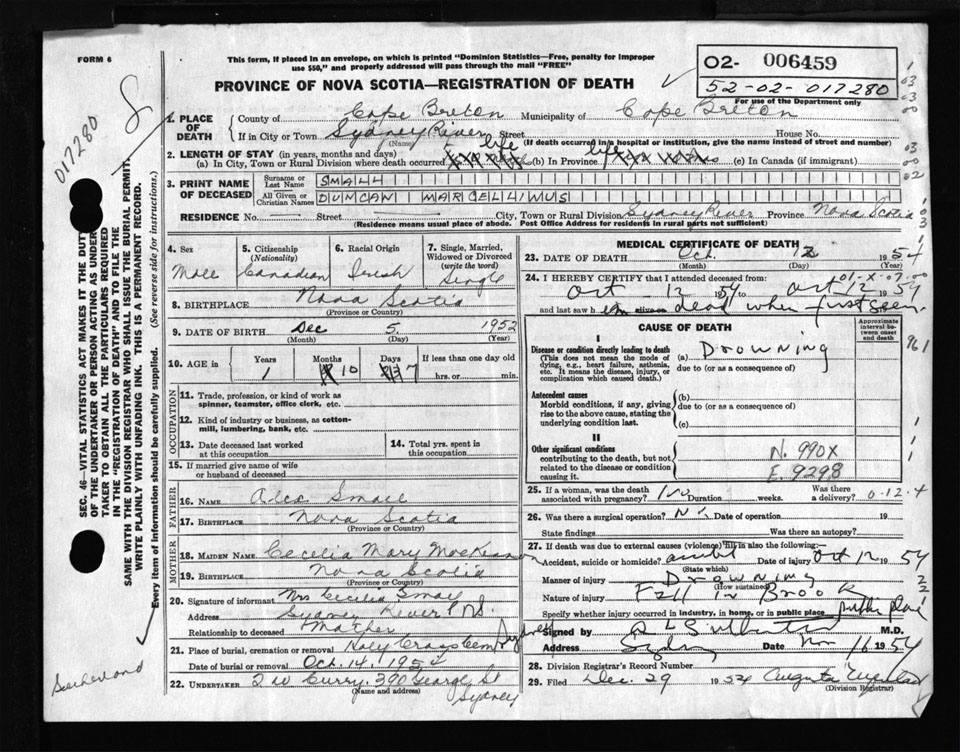 FORM 6
This form, if placed in an envelope, on which is printed "Dominion Statistics—Free, penalty for improper
use $50," and properly addressed will pass through the mail "FREE"
PROVINCE OF NOVA SCOTIA—REGISTRATION OF DEATH
02- 006459
52-02-017280
For use of the Department only
017280
SEC. 46—VITAL STATISTICS ACT MAKES IT THE DUTY
OF THE UNDERTAKER OR PERSON ACTING AS UNDER-
TAKER TO OBTAIN ALL THE PARTICULARS REQUIRED
IN THE "REGISTRATION OF DEATH" AND TO FILE THE
SAME WITH THE DIVISION REGISTRAR WHO SHALL ISSUE THE BURIAL PERMIT.
WRITE PLAINLY WITH UNFADING INK. THIS IS A PERMANENT RECORD.
Every item of information should be carefully supplied. (See reverse side for instructions.)
1. PLACE OF DEATH
County of Cape Breton Municipality of Cape Breton
If in City or Town Sydney River Street House No.
(Name) (If death occurred in a hospital or institution, give the name instead of street and number)
2. LENGTH OF STAY (in years, months and days)
(a) In City, Town or Rural Division where death occurred life (b) In Province life (c) In Canada (if immigrant)
3. PRINT NAME OF DECEASED
Surname or Last Name SMALL
All Given or Christian Names DUNCAN MARCELLINUS
RESIDENCE No. Street City, Town or Rural Division Sydney River Province Nova Scotia
(Residence means usual place of abode. Post Office Address for residents in rural parts not sufficient)
4. Sex
Male
5. Citizenship (Nationality)
Canadian
6. Racial Origin
Irish
7. Single, Married, Widowed or Divorced (write the word)
Single
8. BIRTHPLACE Nova Scotia
(Province or Country)
9. DATE OF BIRTH Dec 5 1952
(Month) (Day) (Year)
10. AGE in Years Months Days If less than one day old
1 10 7 hrs. or min.
OCCUPATION
11. Trade, profession, or kind of work as
spinner, teamster, office clerk, etc.
12. Kind of industry or business, as cotton-
mill, lumbering, bank, etc.
13. Date deceased last worked
at this occupation
14. Total yrs. spent in
this occupation
15. If married give name of wife
or husband of deceased
FATHER
16. NAME Alex Small
17. BIRTHPLACE Nova Scotia
(Province or Country)
MOTHER
18. MAIDEN NAME Cecelia Mary MacLean
19. BIRTHPLACE Nova Scotia
(Province or Country)
20. Signature of informant Mrs Cecelia Small
Address Sydney River N.S.
Relationship to deceased Mother
21. Place of burial, cremation or removal Holy Cross Cem Sydney
Date of burial or removal Oct. 14, 1954
22. UNDERTAKER Curry. 390 George St
(Name and address) Sydney
Sutherland
MEDICAL CERTIFICATE OF DEATH
23. DATE OF DEATH Oct. 12 1954
(Month) (Day) (Year)
24. I HEREBY CERTIFY that I attended deceased from:
01-X-07.00
Oct 12 1954 to Oct 12 1954
and last saw h dead when first seen
CAUSE OF DEATH
Approximate interval between onset and death
I
Disease or condition directly leading to death
(This does not mean the mode of
dying, e.g., heart failure, asthenia,
etc. It means the disease, injury, or
complication which caused death.)
(a) Drowning
due to (or as a consequence of)
Antecedent causes
Morbid conditions, if any, giving
rise to the above cause, stating the
underlying condition last.
(b)
due to (or as a consequence of)
(c)
II
Other significant conditions
contributing to the death, but not
related to the disease or condition
causing it.
N. 990X
E. 9298
961
25. If a woman, was the death
associated with pregnancy? No Duration weeks. Was there a delivery? 0-12.4
26. Was there a surgical operation? No Date of operation 19
State findings Was there an autopsy?
27. If death was due to external causes (violence) fill in also the following:—
Accident, suicide or homicide? Date of injury Oct 12 1954
(State which)
Manner of injury Drowning
(How sustained)
Nature of injury Fall in Brook
Specify whether injury occurred in industry, in home, or in public place public place
Signed by M.D.
Address Sydney Date Nov 16 1954
28. Division Registrar's Record Number
29. Filed Dec. 29 1954
(Division Registrar)